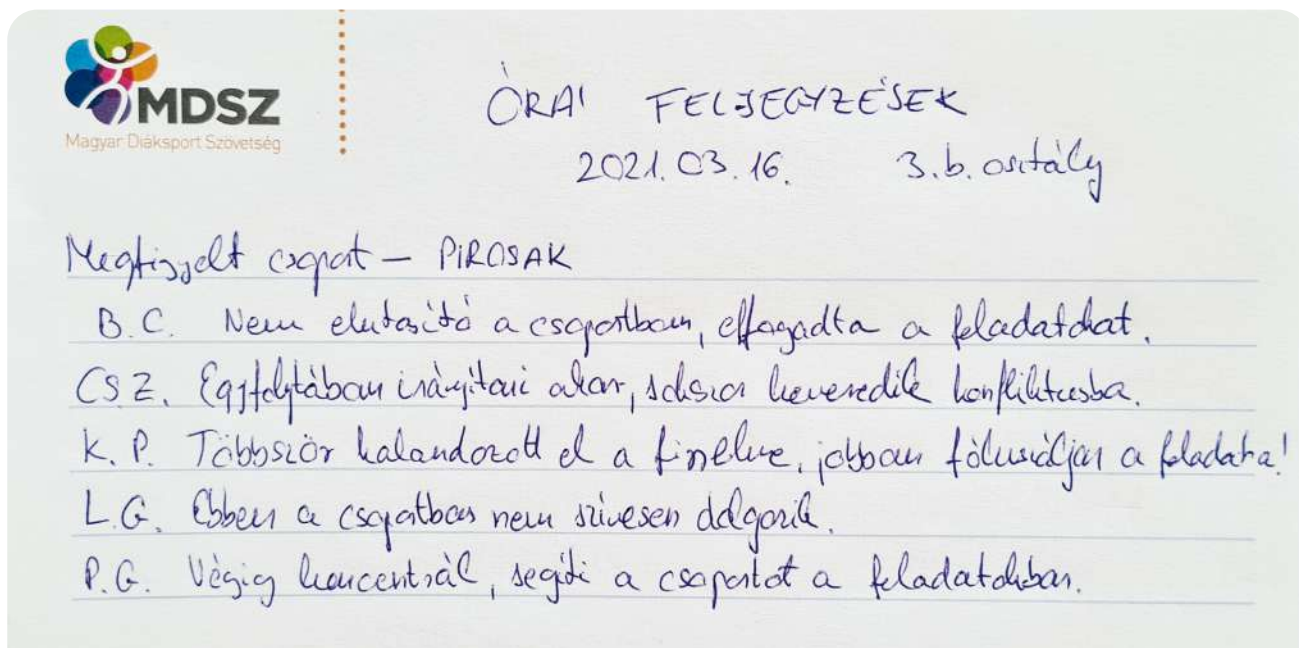 MDSZ
Magyar Diáksport Szövetség
ÓRAI FELJEGYZÉSEK
2021.03.16. 3.b. osztály
Megfigyelt csoport – PIROSAK
B.C. Nem elutasító a csoportban, elfogadta a feladatokat.
CS.Z. Egyfolytában irányítani akar, sokszor keveredik konfliktusba.
K.P. Többször kalandozott el a figyelme, jobban fókuszáljon a feladatra!
L.G. Ebben a csoportban nem szívesen dolgozik.
P.G. Végig koncentrál, segíti a csoportot a feladatokban.